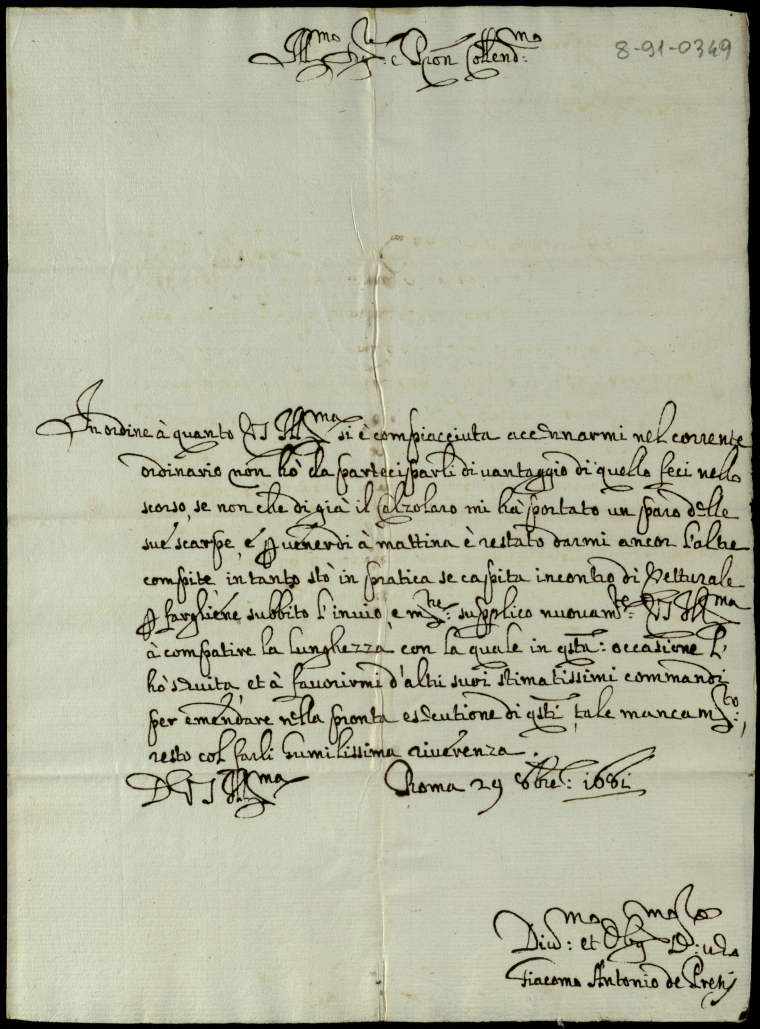 Ill.mo Sig.re e Pron Collend.mo
8-91-0349
In ordine à quanto VS Ill.ma si è compiacciuta accennarmi nel corrente
ordinario non hò da parteciparli di uantaggio di quello feci nello
scorso, se non che di già il Calzolaro mi hà portato un paro delle
sue scarpe, e p uenerdi à mattina è restato darmi ancor l'altre
compite, in tanto stò in pratica se capita incontro di Vetturale
p fargliene subbito l'inuio, e m.tre supplico nuouam.te VS Ill.ma
à compatire la lunghezza, con la quale in qsta: occasione l'
hò seruita, et à fauorirmi d'altri suoi stimatissimi commandi
per emendare nella pronta esecutione di qsti tale mancam.to:,
resto col farli humilissima riuerenza.
D VS Ill.ma Roma 29 8bre: 1681
Diu.mo: et Obg.mo
Giacomo Antonio de Pretis